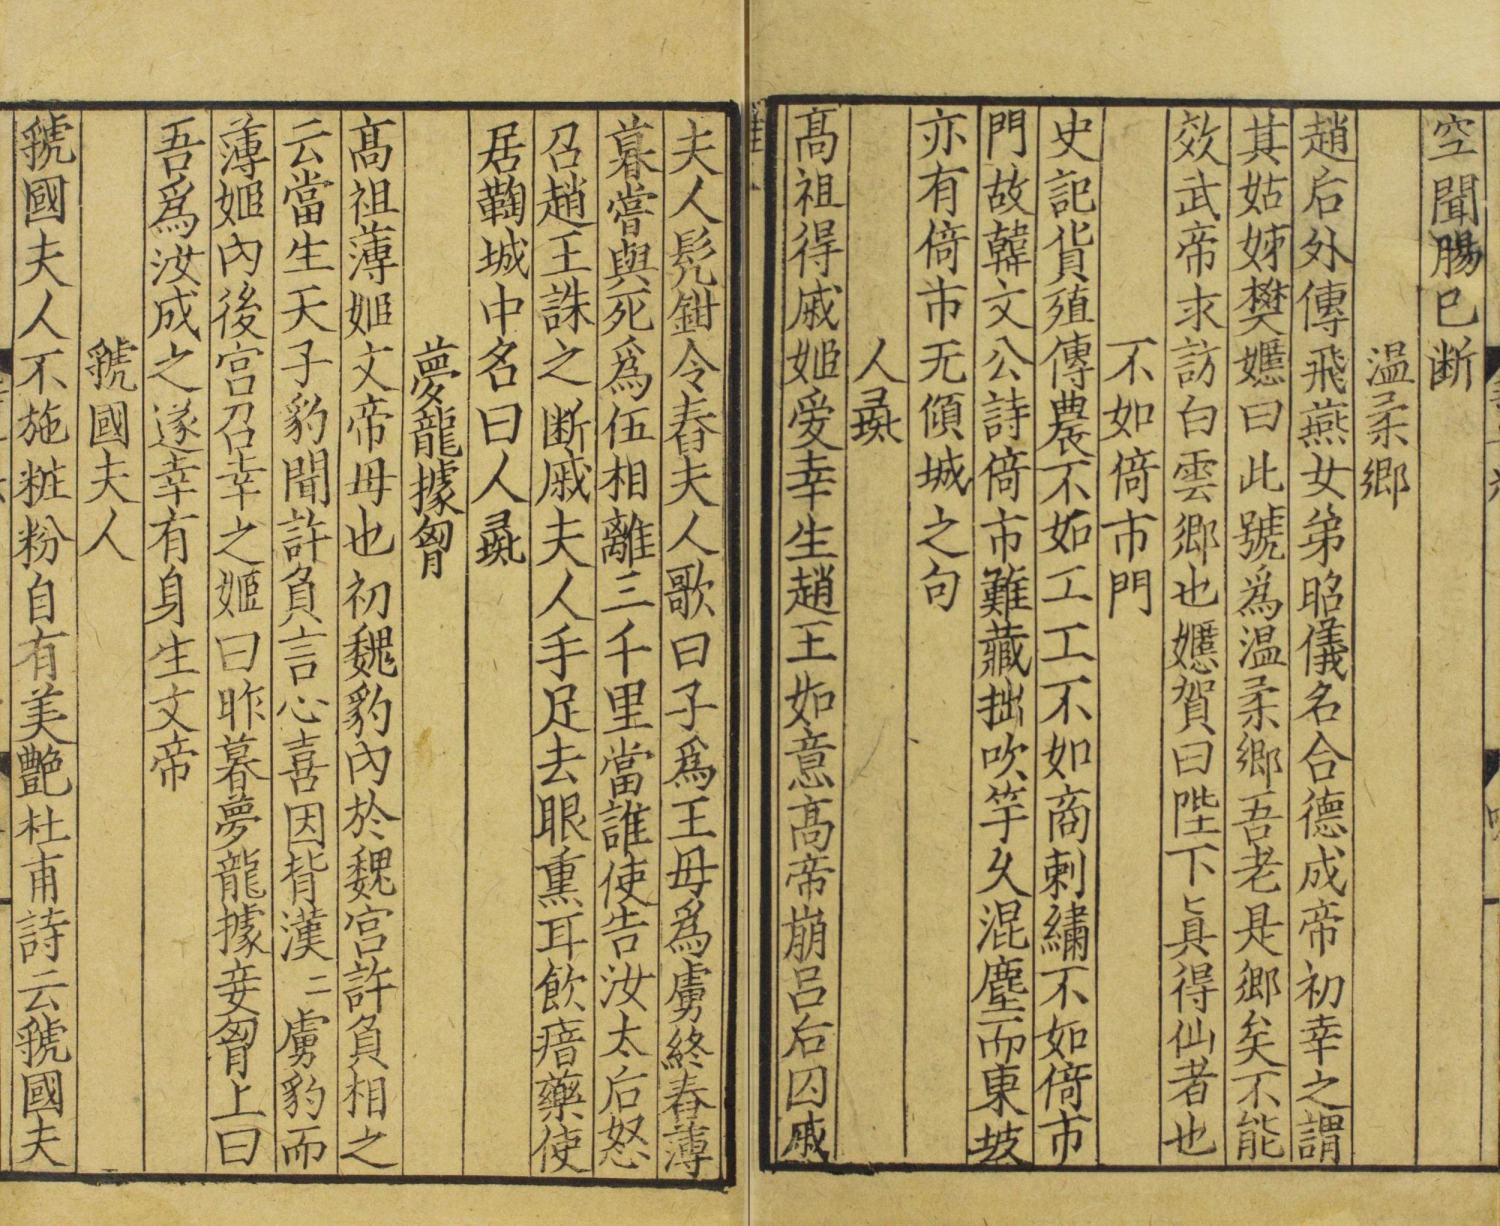 空聞腸已断
温柔郷
趙后外傳飛燕女弟昭儀名合德成帝初幸之謂
其姑姊樊嬺曰此號爲温柔郷吾老是郷矣不能
效武帝求訪白雲郷也嬺賀曰陛下真得仙者也
不如倚市門
史記貨殖傳農不如工工不如商刺繡不如倚市
門故韓文公詩倚市難藏拙吹竽久混塵而東坡
亦有倚市无傾城之句
人彘
髙祖得戚姬爱幸生趙王如意髙帝崩吕后囚戚
夫人髠鉗令舂夫人歌曰子爲王母爲虜終舂薄
暮嘗與死爲伍相離三千里當誰使告汝太后怒
召趙王誅之断戚夫人手足去眼熏耳飲瘖藥使
居鞠城中名曰人彘
夢龍據胷
髙祖薄姬文帝母也初魏豹内於魏宫許負相之
云當生天子豹聞許負言心喜因背漢二虜豹而
薄姬内後宫召幸之姬曰昨暮夢龍據妾胷上曰
吾爲汝成之遂幸有身生文帝
虢國夫人
虢國夫人不施粧粉自有美艷杜甫詩云虢國夫